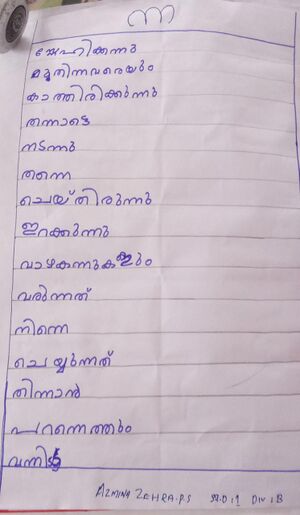 ന്ന
സ്നേഹിക്കന്നു
മുതിന്നവരെയും
കാത്തിരിക്കുന്നു
തന്നാട്ടെ
നടന്നു
തന്നെ
ചെയ്തിരുന്നു
ഇറക്കുന്നു
വാഴകന്നുകളും
വരുന്നത്
നിന്നെ
ചെയ്യുന്നത്
തിന്നാൻ
പറന്നെത്തും
വന്നിട്ടു
AZMINA ZEHRA.P.S STD:1 DIV:B